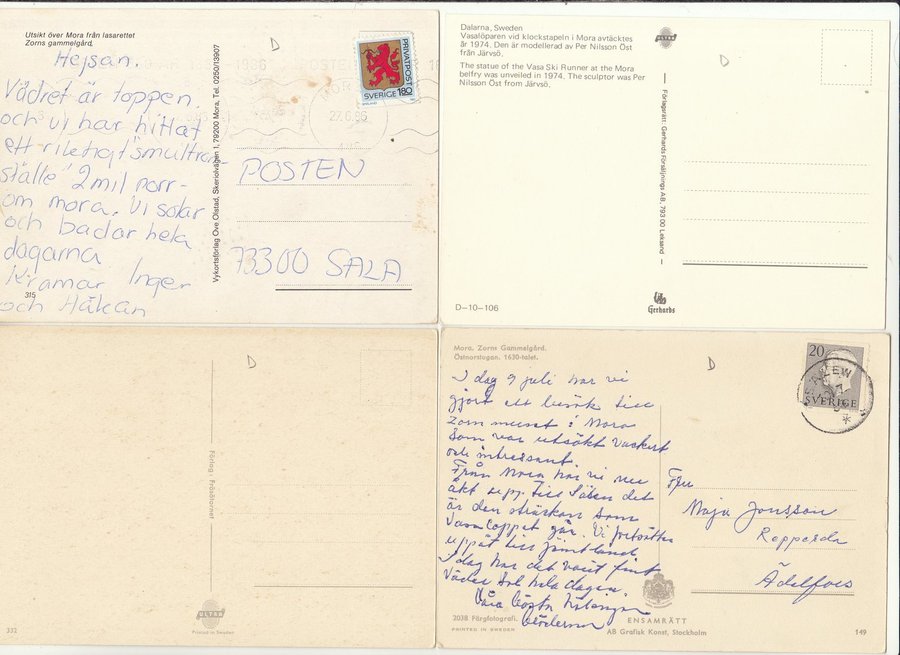 Utsikt över Mora från lasarettet
Zorns gammelgård.
Hejsan.
Vädret är toppen,
och vi har hittat
ett riktigt "smultron-
ställe" 2 mil norr-
om mora. Vi solar
och badar hela
dagarna
Kramar Inger
och Håkan
315
Vykortsförlag Ove Olstad, Skeriolvägen 1, 79200 Mora, Tel. 0250/13907
PRIVATPOST
SVERIGE 180
1986
27.6.86
POSTEN
73300 SALA
D
Dalarna, Sweden
Vasalöparen vid klockstapeln i Mora avtäcktes
år 1974. Den är modellerad av Per Nilsson Öst
från Järvsö.
The statue of the Vasa Ski Runner at the Mora
belfry was unveiled in 1974. The sculptor was Per
Nilsson Öst from Järvsö.
ULTRA
D
Förlagsrätt: Gerhards Försäljnings AB, 793 00 Leksand
D-10-106
Gerhards
D
Förlag Frösöfornet
ULTRA
Printed in Sweden
332
Mora. Zorns Gammelgård.
Östnorstugan. 1630-talet.
D
20
SVERIGE
I dag 9 juli har vi
gjort ett besök till
Zorn museet i Mora
som var utsökt vackert
och intressant.
Från Mora har vi nu
åkt upp till Sälen det
är den sträckan som
Vasaloppet går. Vi fortsätter
uppåt till Jämtland
I dag har det varit fint
väder sol hela dagen.
Våra bästa hälsningar
Fru
Maja Jonsson
Repperda
Ädelfors
2038 Färgfotografi.
PRINTED IN SWEDEN
ENSAMRÄTT
AB Grafisk Konst, Stockholm
149